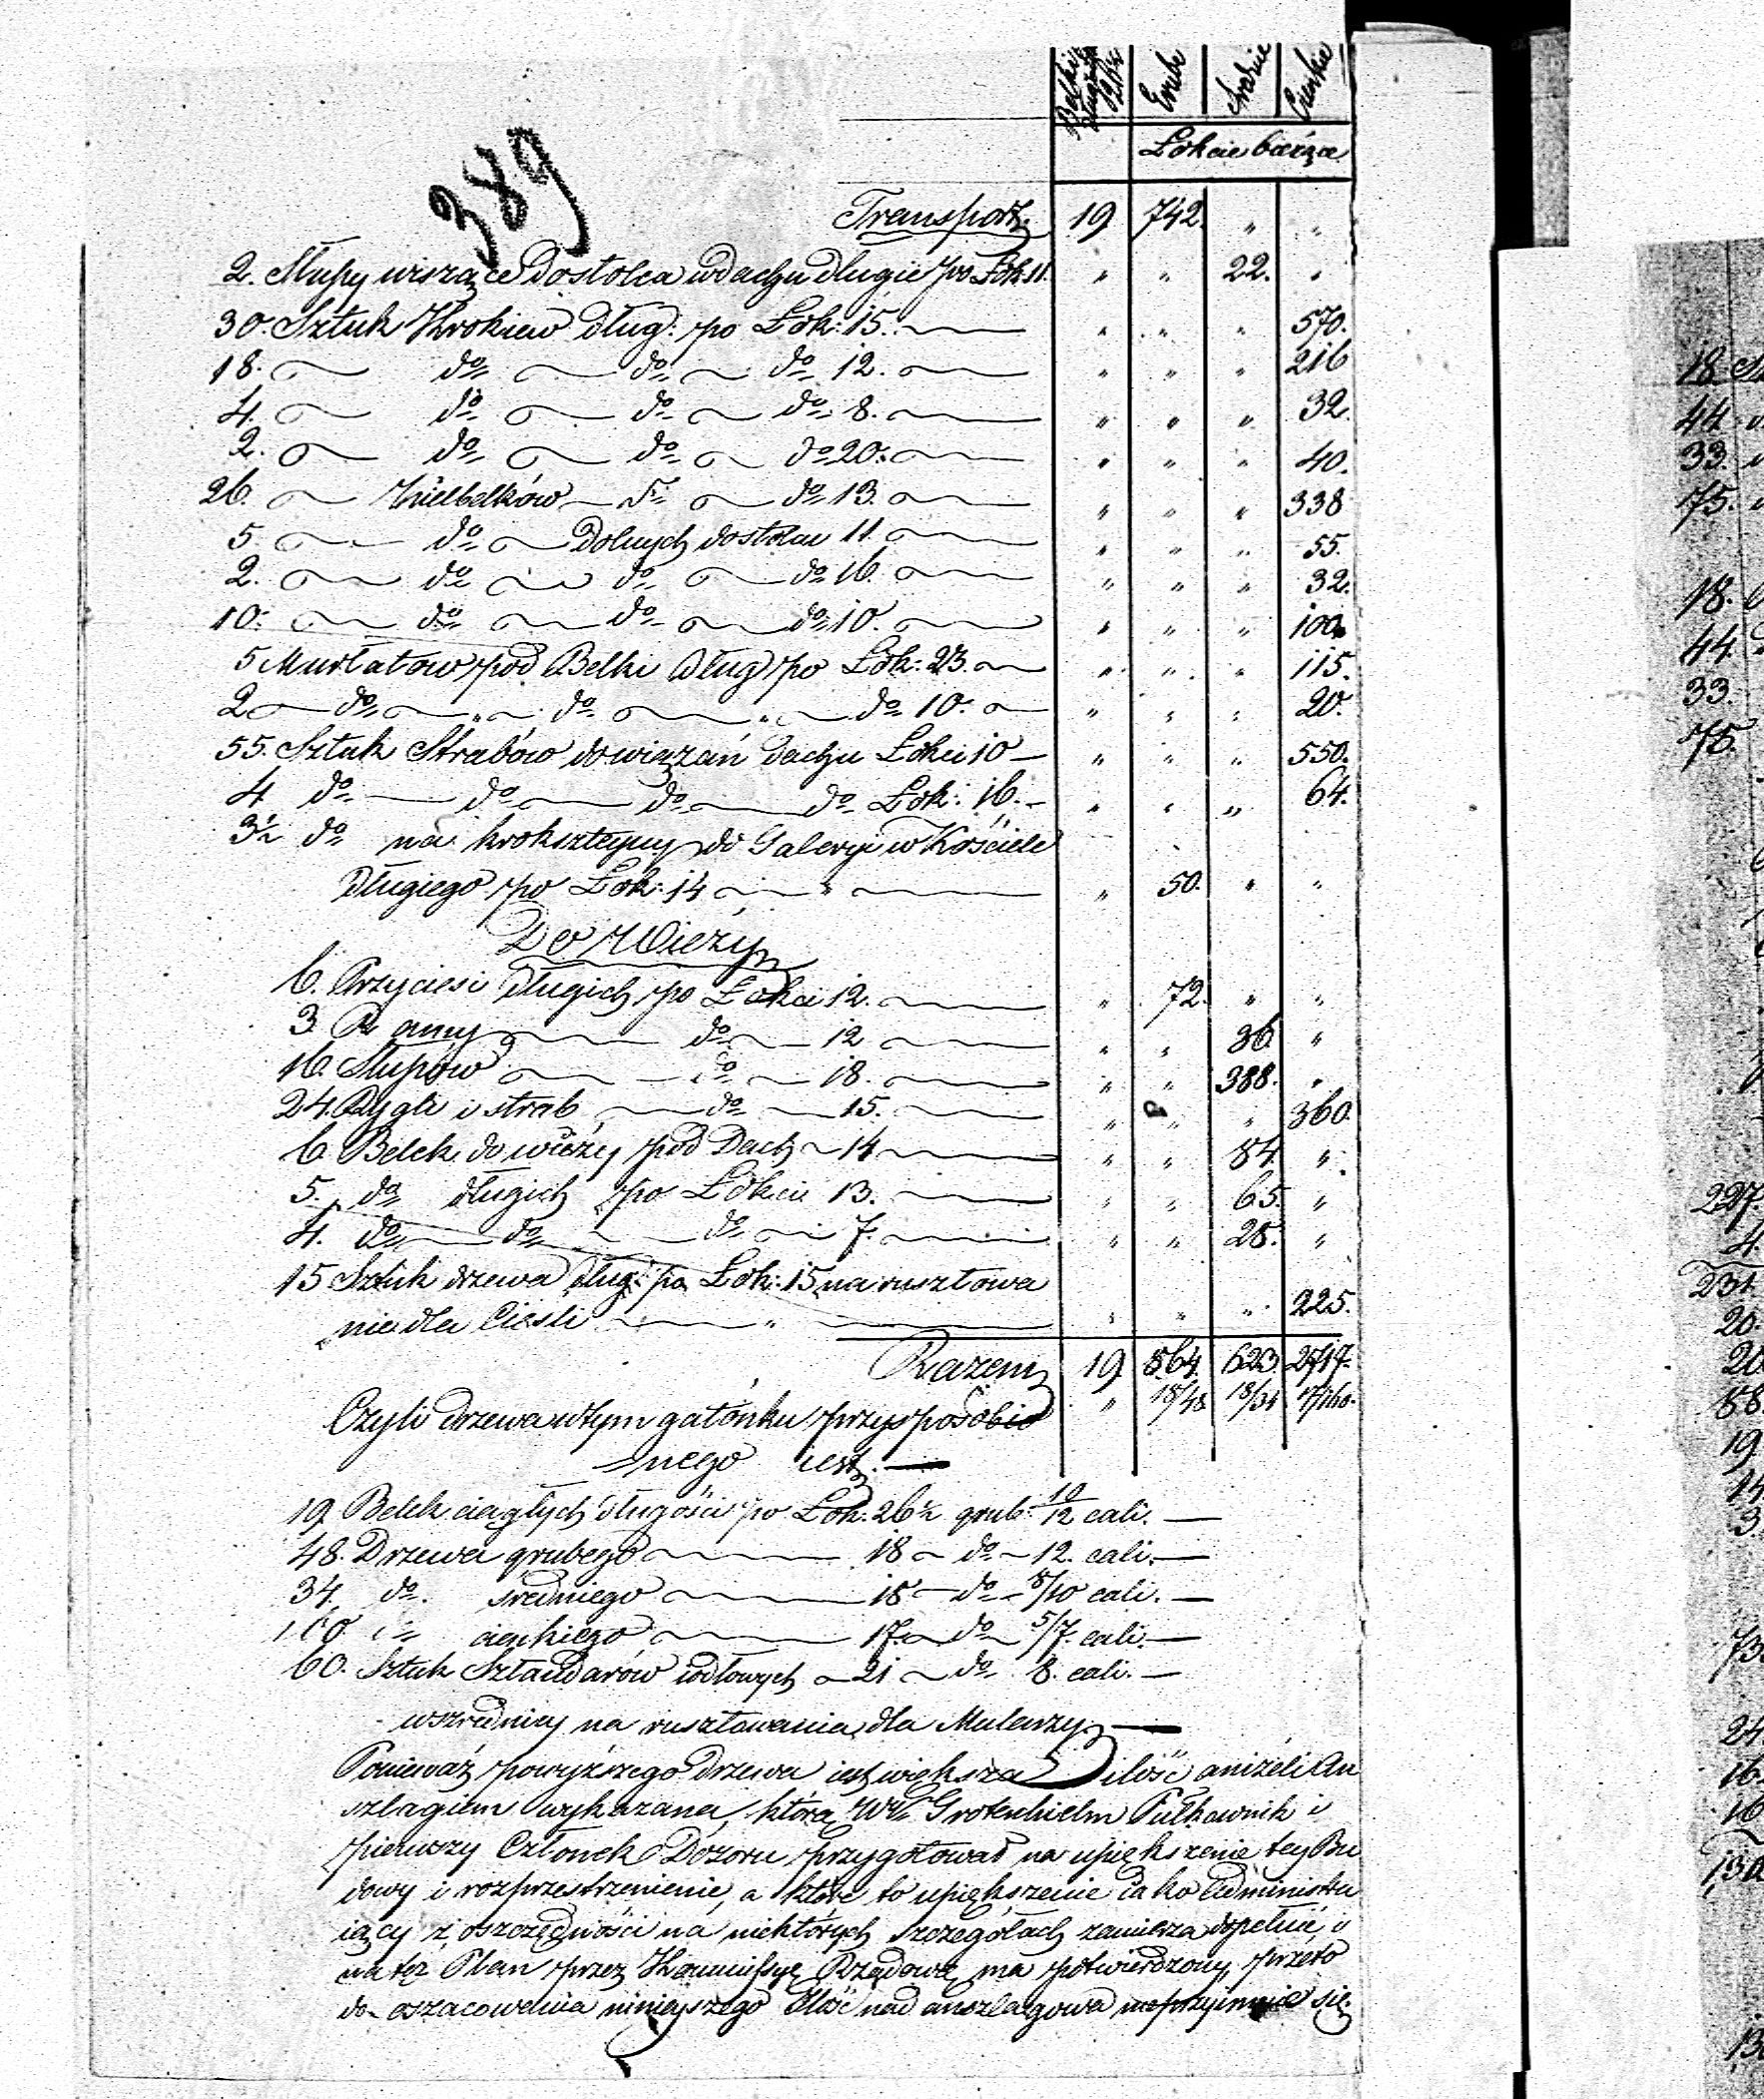 Belki długie 26½ | Grube | średnie | Cienkie
Łokcie bieżące
389
Transport. 19 742. " "
2. Słupy wiszące do stolca w dachu długie po Łok. 11. " " 22. "
30. Sztuk Krokiew dług: po Łok: 15. " " " 570.
18. do do do 12. " " " 216
4. do do do 8. " " " 32.
2. do do do 20. " " " 40.
26. do 13. " " " 338
5. do Dolnych do stolca 11. " " " 55.
2. do do do 16. " " " 32.
10. do do do 10. " " " 100.
5 Murłatów pod Belki Dług po Łok: 23. " " " 115.
2 do " do " do 10. " " " 20.
55. Sztuk Strabów do wiązań dachu Łokci 10 " " " 550.
4 do do do do Łok: 16. " " " 64.
3½ do na kroksztyny do Galeryi w Kościele
długiego po Łok: 14 " " 50. " "
Do Wieży
6. Przyciesi długich po Łokci 12. " 72. " "
3. Ramy do 12 " " 36 "
16. Słupów do 18. " " 388. "
24. Rygli i strab do 15. " " " 360.
6. Belek do wieży pod Dach 14 " " 84 "
5. do długich po Łokci 13. " " 65. "
4. do do do 7. " " 28. "
15 Sztuk drzewa dług: po Łok: 15 na rusztowa
nie dla Cieśli " " " " 225.
Razem 19 864. 623 2717.
Czyli drzewa w tym gatónku przysposobio " 18/48 18/34 17/160.
=nego iest.
19 Belek ciągłych długości po Łok. 26½ grub: 10/12 cali.
48. Drzewa grubego 18 do 12. cali.
34. do. średniego 18 do 8/10 cali.
160 do cienkiego 17. do 5/7. cali.
60. Sztuk Sztandarów iodłowych 21 do 8. cali.
w srednicy na rusztowania dla Mularzy.
Ponieważ powyższego drzewa iest większa ilość aniżeli An
szlagiem wykazana, którą Grotenhielm Pułkownik i
pierwszy Członek Dozoru przygotował na upiększenie tey Bu
dowy i rozprzestrzenienie, a które to upiększenie iako Administru
iący z oszczędności na niektórych szczegółach zamierza dopełnić, i
na też Plan przez Kommissyę Rządową ma potwierdzony, przeto
do oszacowania niniejszego Ilość nad anszlagowa nieprzyimuie się.
18
44
33.
75.
18.
44.
33.
75.
227.
4
231.
20.
20
88
19
14
3
73
24
16.
16